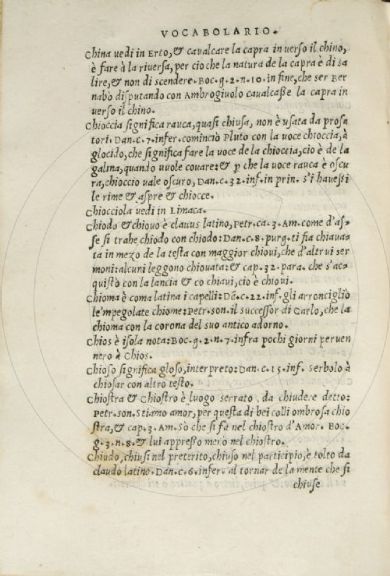 VOCABOLARIO.
China uedi in Erto, & caualcare la capra in uerso il chino,
è fare à la riuersa, per cio che la natura de la capra è di sa
lire, & non di scendere. Boc. g. 2. n. 10. in fine, che ser Ber
nabò disputando con Ambrogiuolo caualcasse la capra in
uerso il chino.
Chioccia significa rauca, quasi chiusa, non è usata da prosa
tori. Dan. c. 7. infer. cominciò Pluto con la uoce chioccia, à
glocido, che significa fare la uoce de la chioccia, cio è de la
galina, quanto uuole couare: & p che la uoce rauca è oscu
ra, chioccio uale oscuro, Dan. c. 32. inf. in prin. s'i hauessi
le rime & aspre & chiocce.
Chiocciola uedi in Limaca.
Chiodo & chiouo è clauus latino, Petr. ca. 3. Am. come d'as=
se si trahe chiodo con chiodo: Dan. c. 8. purg. ti fia chiaua
ta in mezo de la testa con maggior chioui, che d'altrui ser
moni: alcuni leggono chiouata: & cap. 32. para. che s'ac=
quistò con la lancia & co chiaui, cio è chioui.
Chioma è coma latina i capelli: Dā. c. 22. inf. gli arronciglio
le'mpegolate chiome: Petr. son. il successor di Carlo, che la
chioma con la corona del suo antico adorno.
Chios è isola nota: Boc. g. 2. n. 7. infra pochi giorni peruen
nero à Chios.
Chioso significa gloso, interpreto: Dan. c. 15. inf. serbolo à
chiosar con altro testo.
Chiostra & Chiostro è luogo serrato, da chiudere detto:
Petr. son. Stiamo amor, per questa di bei colli ombrosa chio
stra, & cap. 3. Am. Sò che si fe nel chiostro d'Amor. Boc.
g. 3. n. 8. & lui appresso mero nel chiostro.
Chiudo, chiusi nel preterito, chiuso nel participio, è tolto da
claudo latino. Dan. c. 6. infer. al tornar de la mente che si
chiuse